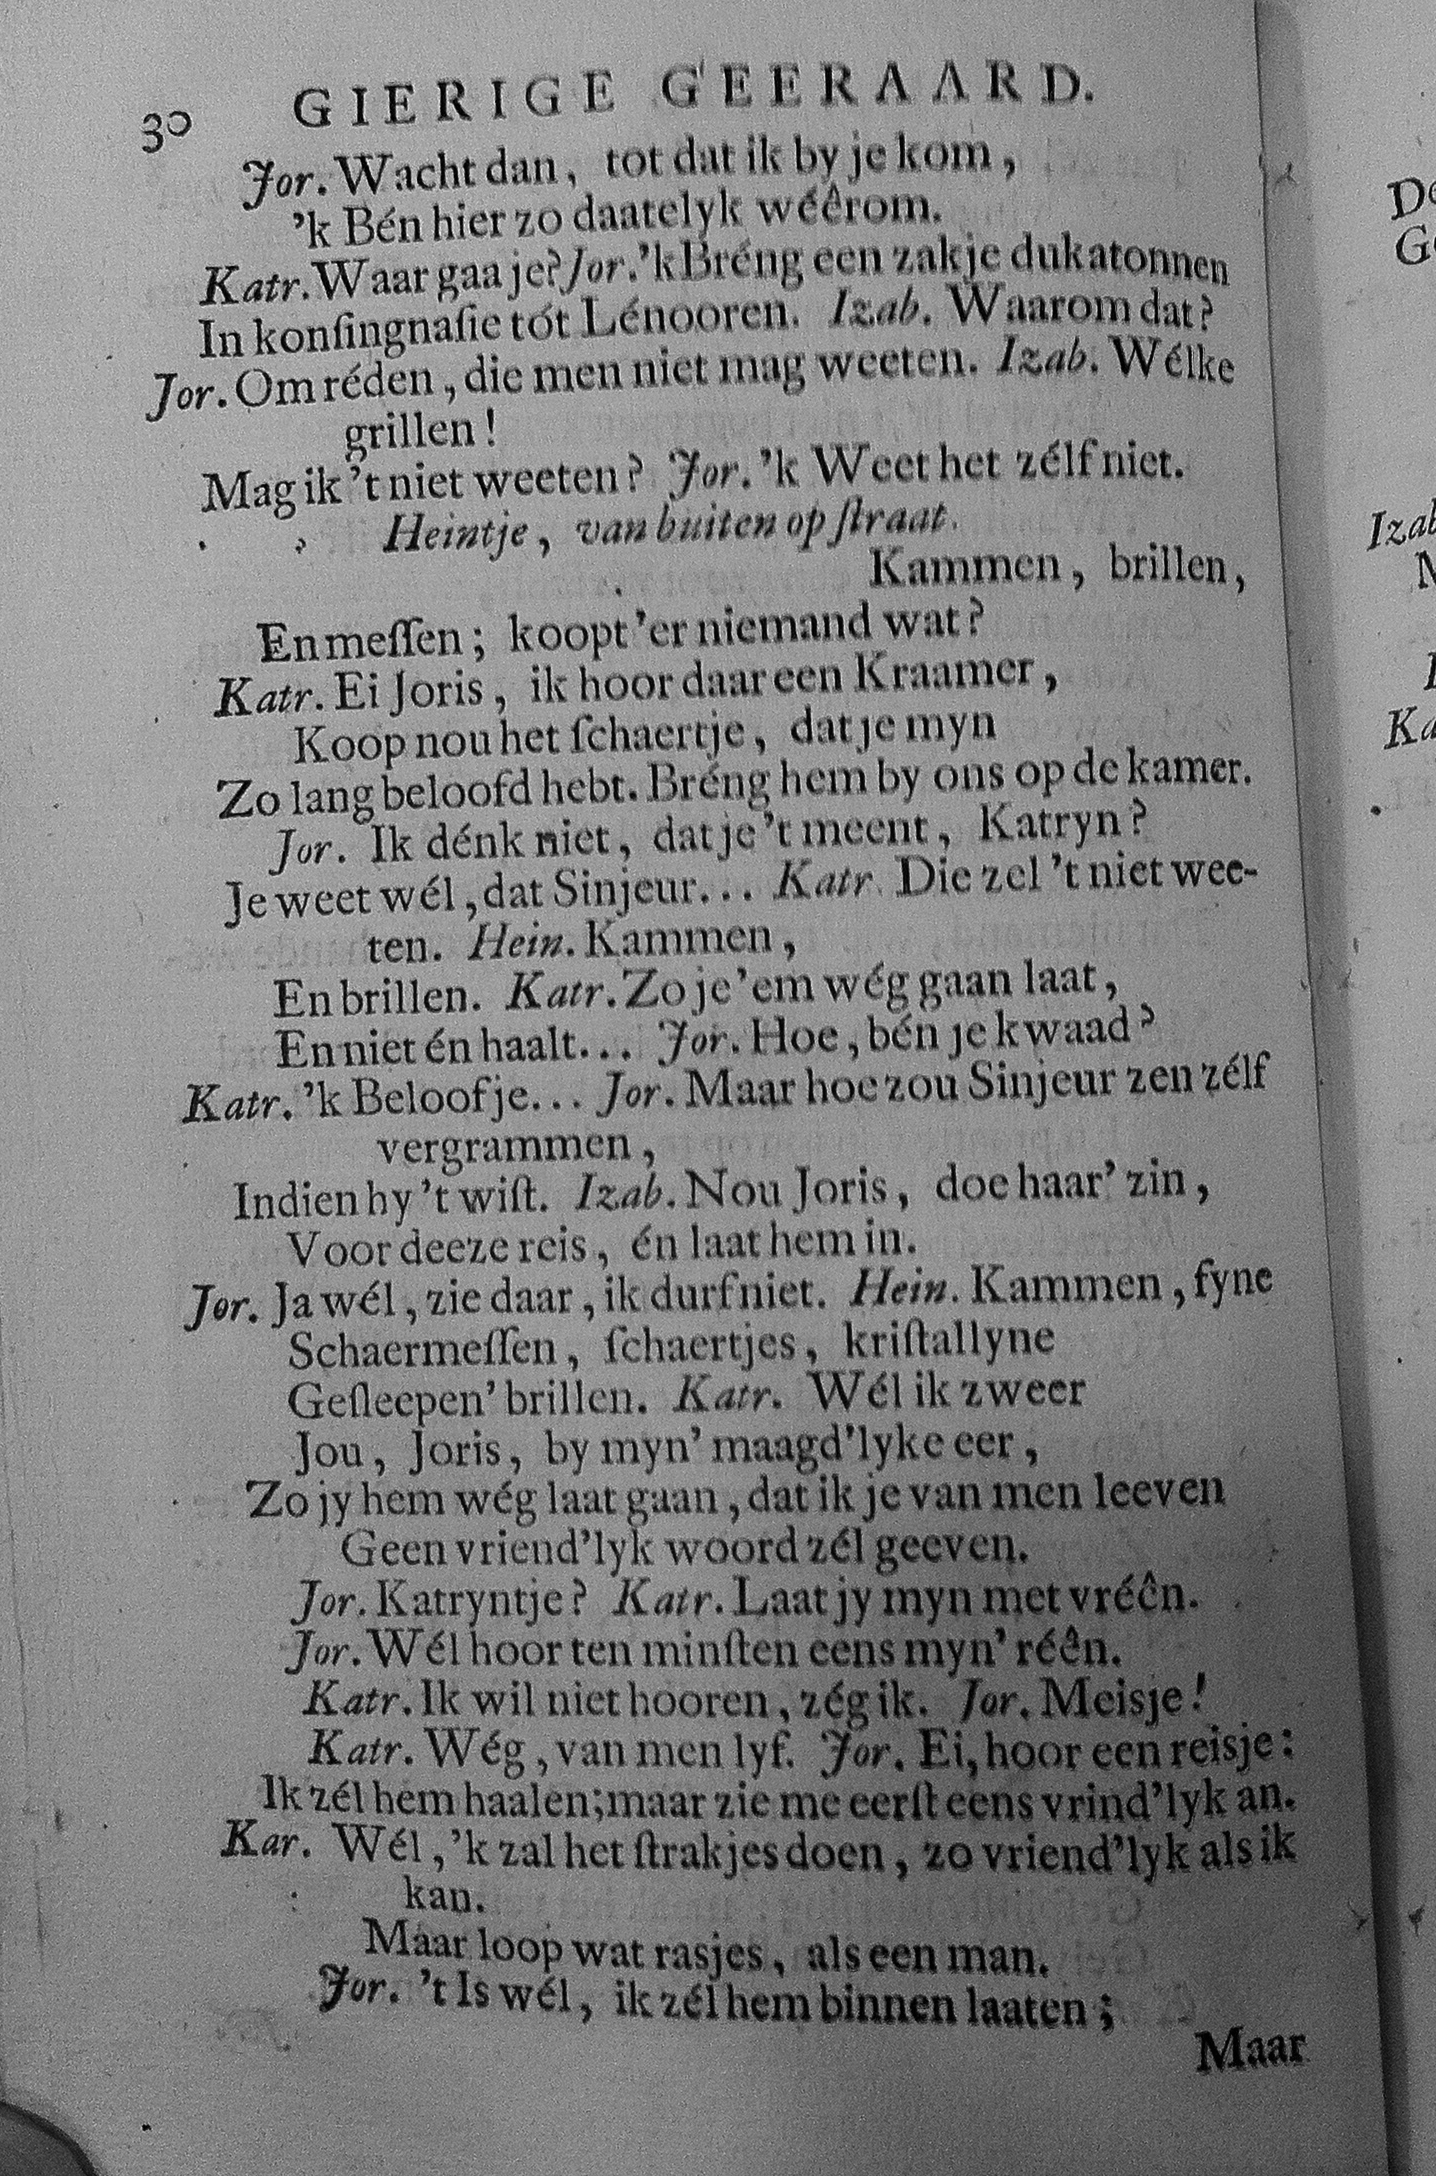 30 GIERIGE GEERAARD.
Jor. Wacht dan, tot dat ik by je kom,
'k Bén hier zo daatelyk wéêrom.
Katr. Waar gaa je? Jor. 'k Bréng een zakje dukatonnen
In konſingnaſie tót Lénooren. Izab. Waarom dat?
Jor. Om réden, die men niet mag weeten. Izab. Wélke
grillen!
Mag ik 't niet weeten? Jor. 'k Weet het zélf niet.
Heintje, van buiten op ſtraat.
Kammen, brillen,
En meſſen; koopt 'er niemand wat?
Katr. Ei Joris, ik hoor daar een Kraamer,
Koop nou het ſchaertje, dat je myn
Zo lang beloofd hebt. Bréng hem by ons op de kamer.
Jor. Ik dénk niet, dat je 't meent, Katryn?
Je weet wél, dat Sinjeur... Katr. Die zel 't niet wee-
ten. Hein. Kammen,
En brillen. Katr. Zo je 'em wég gaan laat,
En niet én haalt... Jor. Hoe, bén je kwaad?
Katr. 'k Beloof je... Jor. Maar hoe zou Sinjeur zen zélf
vergrammen,
Indien hy 't wiſt. Izab. Nou Joris, doe haar' zin,
Voor deeze reis, én laat hem in.
Jor. Ja wél, zie daar, ik durf niet. Hein. Kammen, fyne
Schaermeſſen, ſchaertjes, kriſtallyne
Geſleepen' brillen. Katr. Wél ik zweer
Jou, Joris, by myn' maagd'lyke eer,
Zo jy hem wég laat gaan, dat ik je van men leeven
Geen vriend'lyk woord zél geeven.
Jor. Katryntje? Katr. Laat jy myn met vréên.
Jor. Wél hoor ten minſten eens myn' réên.
Katr. Ik wil niet hooren, zég ik. Jor. Meisje!
Katr. Wég, van men lyf. Jor. Ei, hoor een reisje:
Ik zél hem haalen; maar zie me eerſt eens vrind'lyk an.
Kar. Wél, 'k zal het ſtrakjes doen, zo vriend'lyk als ik
kan.
Maar loop wat rasjes, als een man.
Jor. 't Is wél, ik zél hem binnen laaten;
Maar
Izab